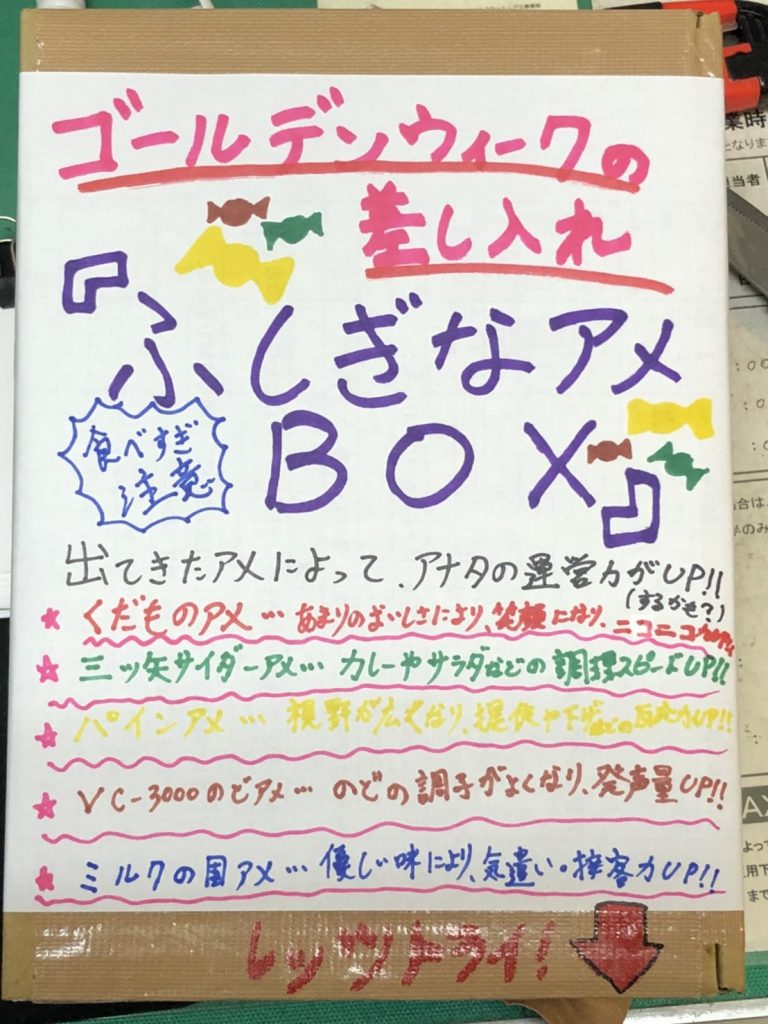 ゴールデンウィークの
差し入れ
『ふしぎなアメ
BOX』
食べすぎ
注意
出てきたアメによって、アナタの運営力がUP!!
(するかも?)
★くだものアメ… あまりのおいしさにより、笑顔になり、ニコニコ力UP!!
★三ッ矢サイダーアメ… カレーやサラダなどの調理スピードUP!!
★パインアメ… 視野が広くなり、提供や下げなどの反応力UP!!
★VC-3000のどアメ… のどの調子がよくなり、発声量UP!!
★ミルクの国アメ… 優しい味により、気遣い・接客力UP!!
レッツトライ!
業時
となりま
担当者